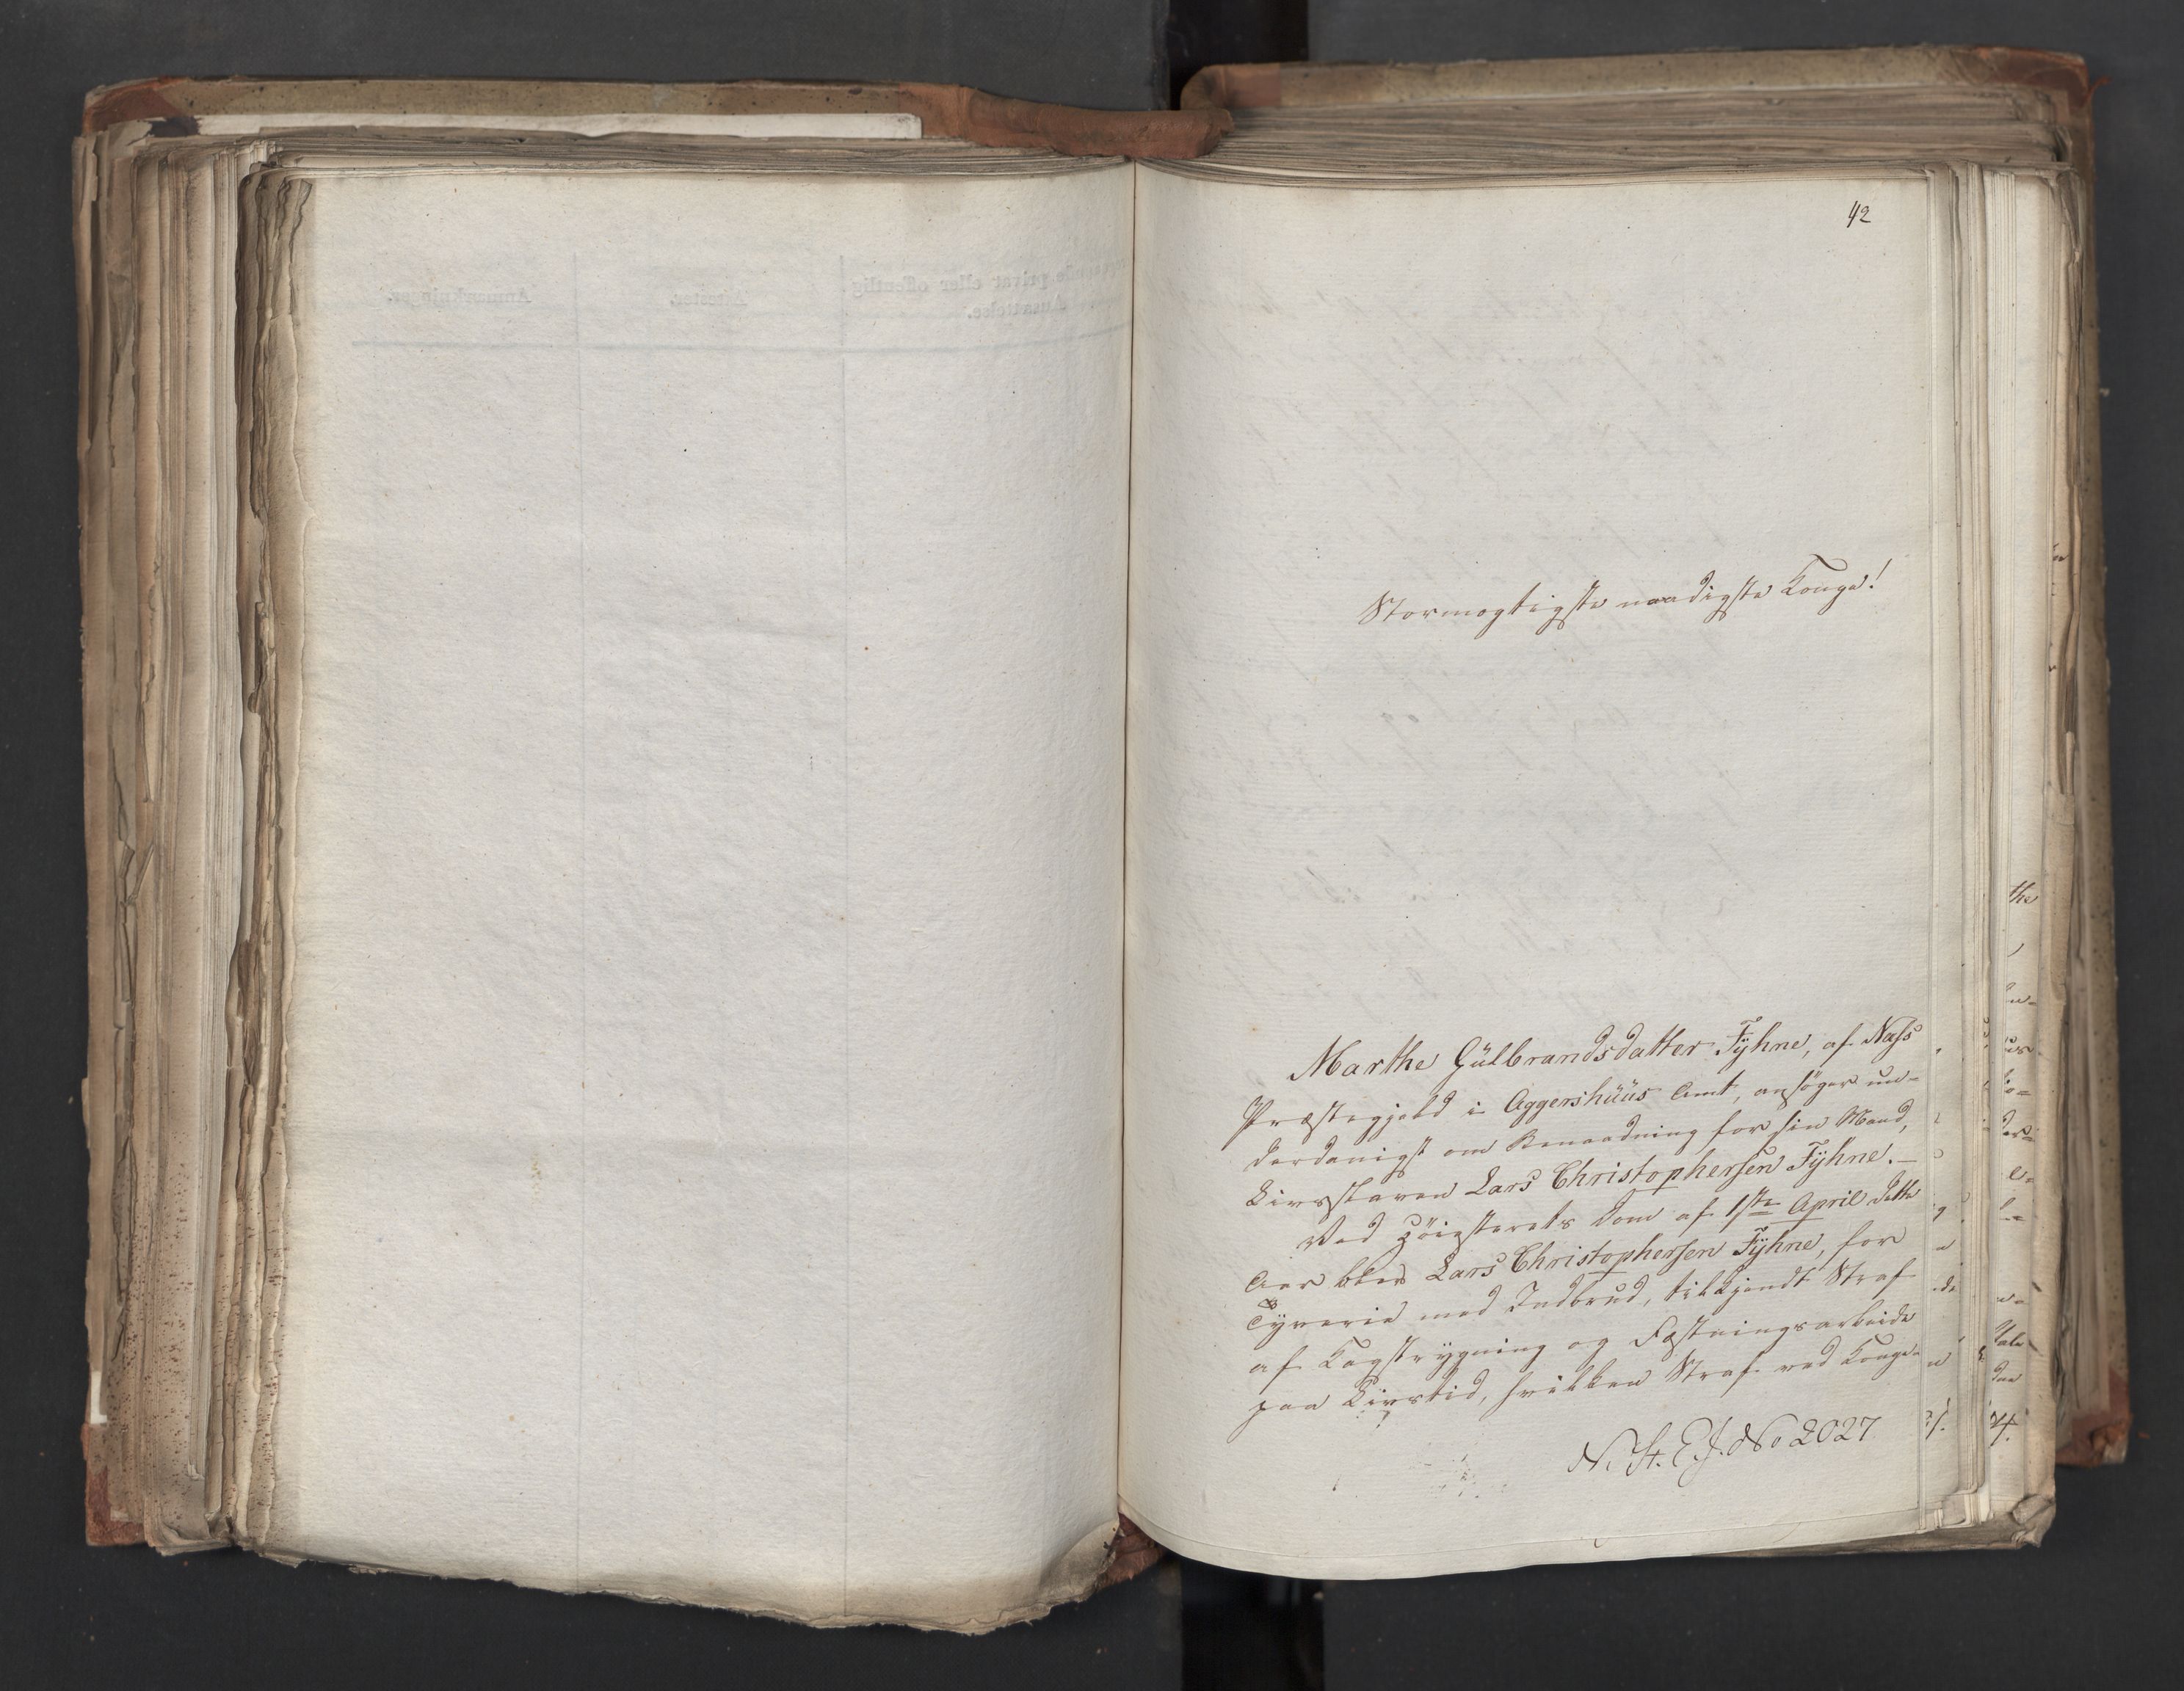 42
Stormægtigste naadigste Konge!
Marthe Gülbrandsdatter Tÿhne, af Næss
Præstegjeld i Aggershüüs Amt, ansøger un-
derdanigst om Benaadning for sin Mand,
Livsslaven Lars Christophersen Tÿhne.—
Ved Høiesterets Dom af 1ste April dette
Aar blev Lars Christophersen Tÿhne, for
Tyverie med Indbrud, tilkjendt Straf
af Kagstrygning og Fæstningsarbeide
paa Livstid, hvilken Straf ved Konge-
N. St. E. J. No 2027